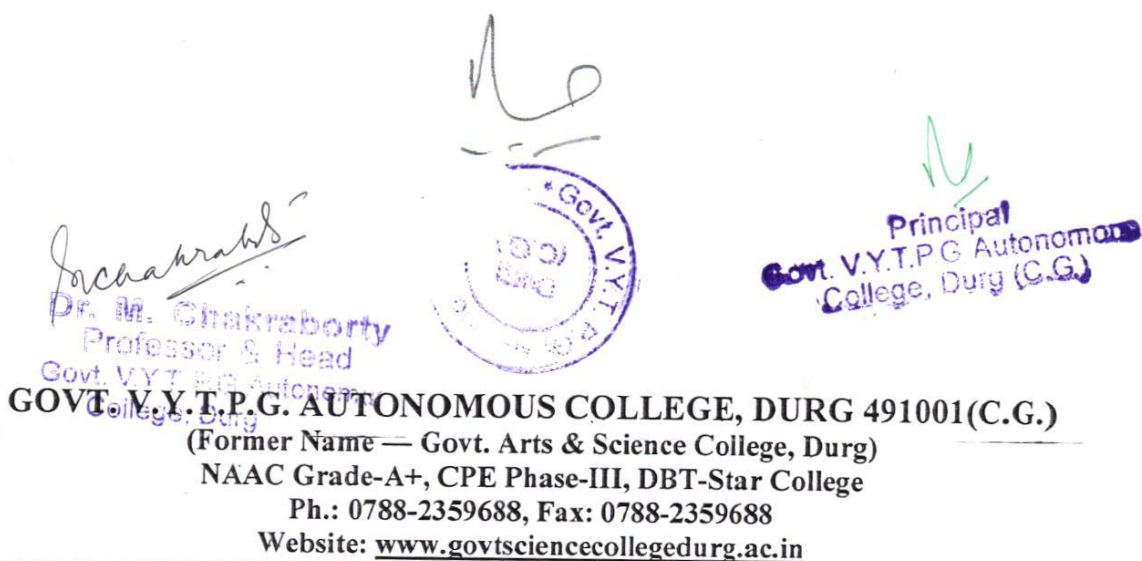 * Govt. V.Y.T. P.G.
Principal
Govt. V.Y.T.P.G Autonomous
College, Durg (C.G.)
Dr. M. Chakraborty
Professor & Head
Govt. V.Y.T. P.G. Autonomous
College, Durg
GOVT. V.Y.T.P.G. AUTONOMOUS COLLEGE, DURG 491001(C.G.)
(Former Name — Govt. Arts & Science College, Durg)
NAAC Grade-A+, CPE Phase-III, DBT-Star College
Ph.: 0788-2359688, Fax: 0788-2359688
Website: www.govtsciencecollegedurg.ac.in